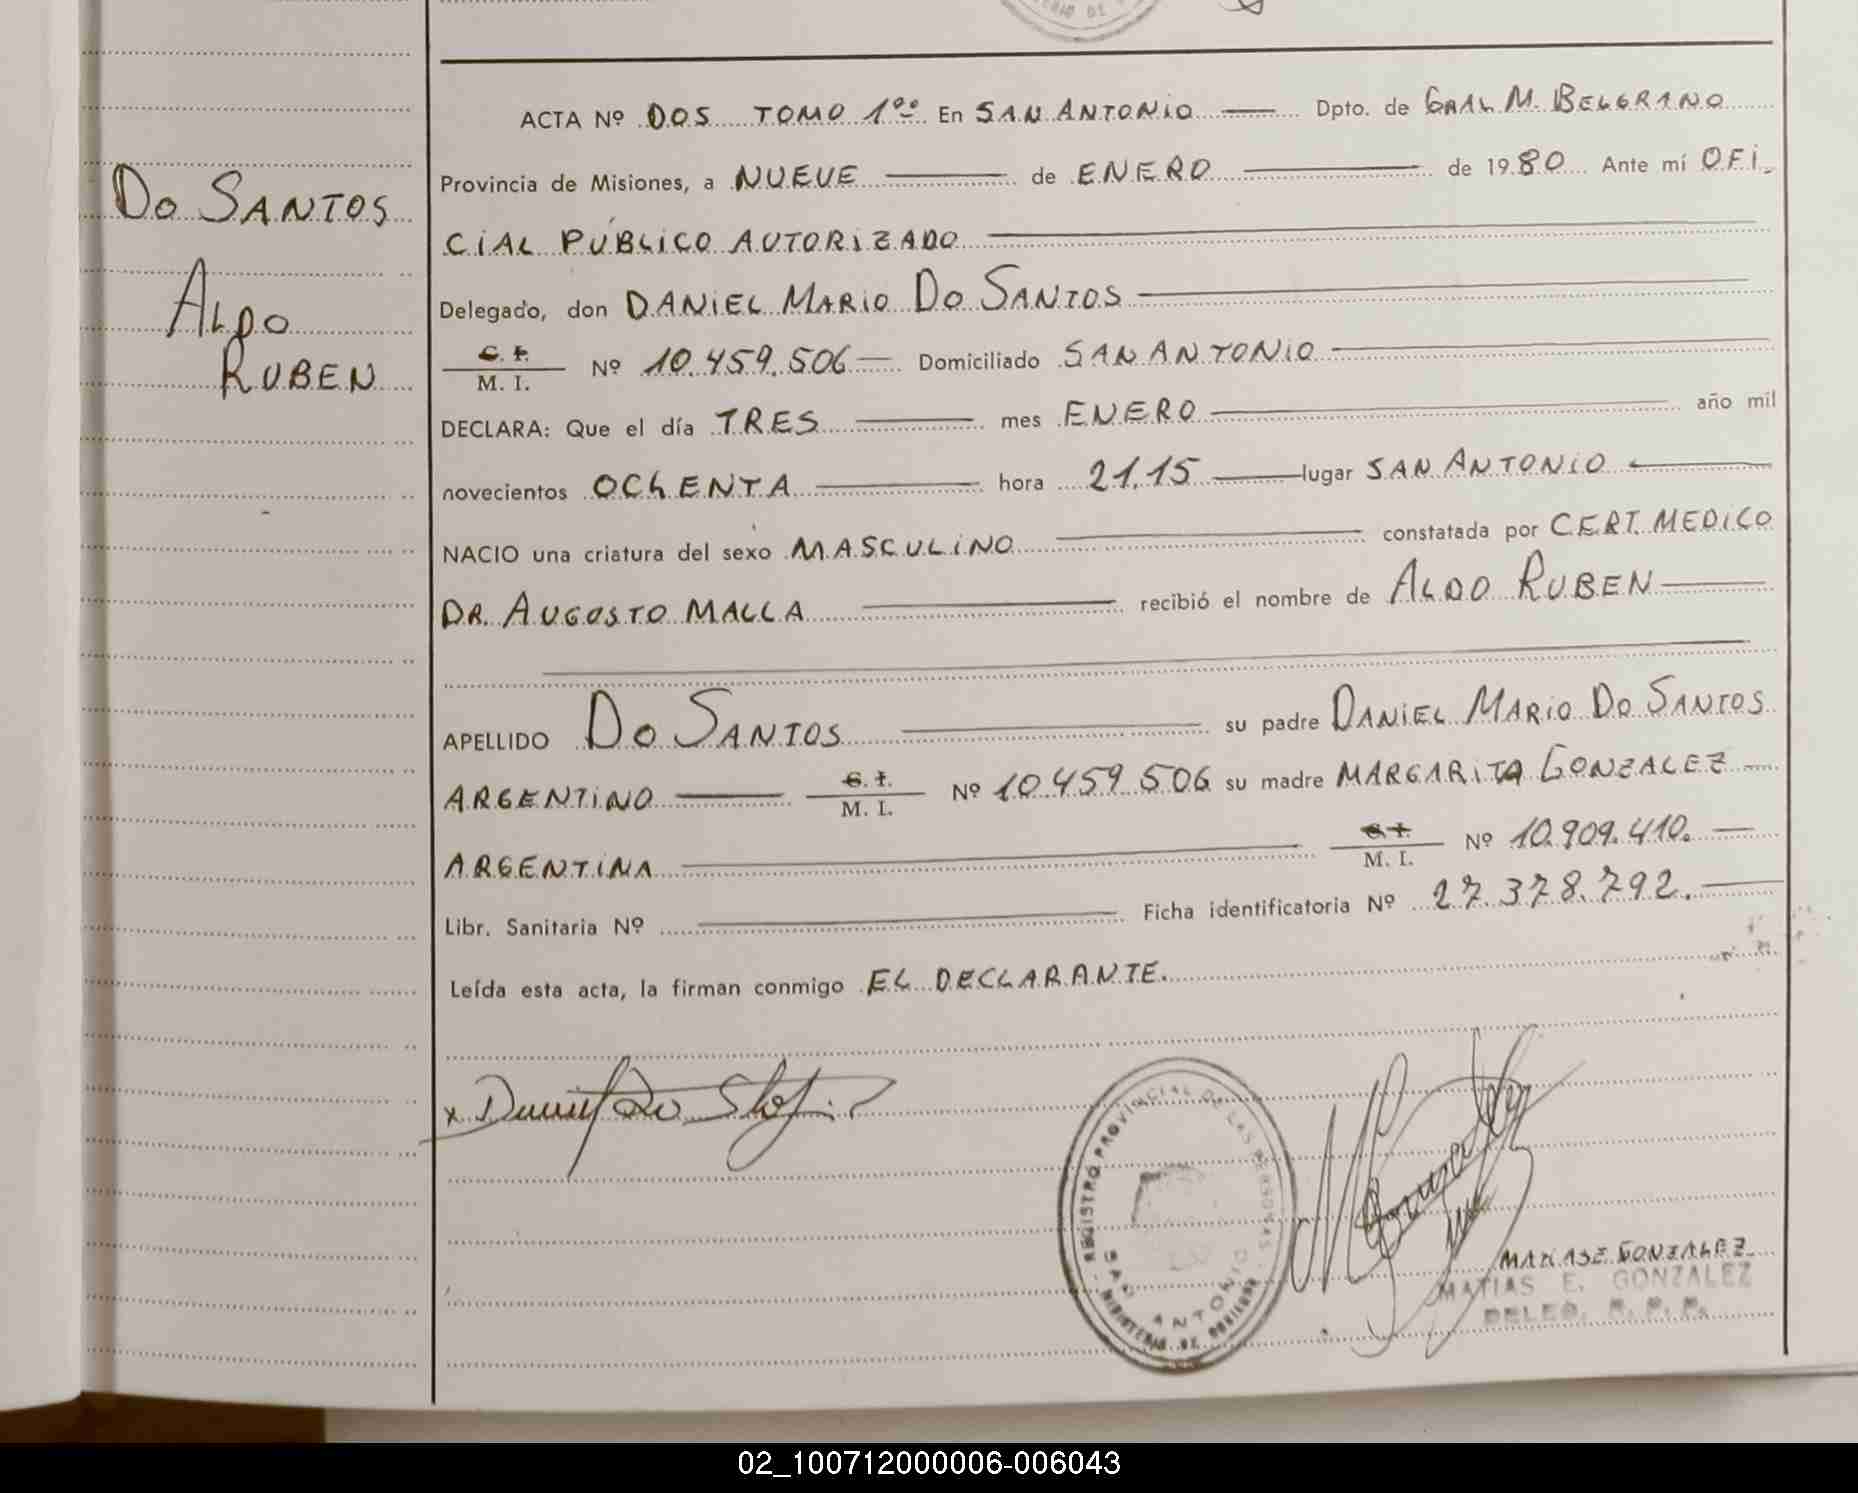 ERIO DE
ACTA Nº DOS TOMO 1º En SAN ANTONIO Dpto. de GRAL M. BELGRANO
Provincia de Misiones, a NUEVE de ENERO de 1980 Ante mí OFI_
CIAL PÚBLICO AUTORIZADO
Delegado, don DANIEL MARIO DO SANTOS
C. I.
M. I. Nº 10.459.506 Domiciliado SAN ANTONIO
DECLARA: Que el día TRES mes ENERO año mil
novecientos OCHENTA hora 21.15 lugar SAN ANTONIO
NACIO una criatura del sexo MASCULINO constatada por CERT. MEDICO
DR. AUGOSTO MALLA recibió el nombre de ALDO RUBEN
APELLIDO DO SANTOS su padre DANIEL MARIO DO SANTOS
ARGENTINO C. I.
M. I. Nº 10.459.506 su madre MARGARITA GONZALEZ
ARGENTINA C. I.
M. I. Nº 10.909.410.
Libr. Sanitaria Nº Ficha identificatoria Nº 27.378.792.
Leída esta acta, la firman conmigo EL DECLARANTE.
DO SANTOS
ALDO
RUBEN
x
REGISTRO PROVINCIAL DE LAS PERSONAS
SAN ANTONIO
MINISTERIO DE GOBIERNO
MATIAS E. GONZALEZ
MATIAS E. GONZALEZ
DELEG. R. P. P.
02_100712000006-006043